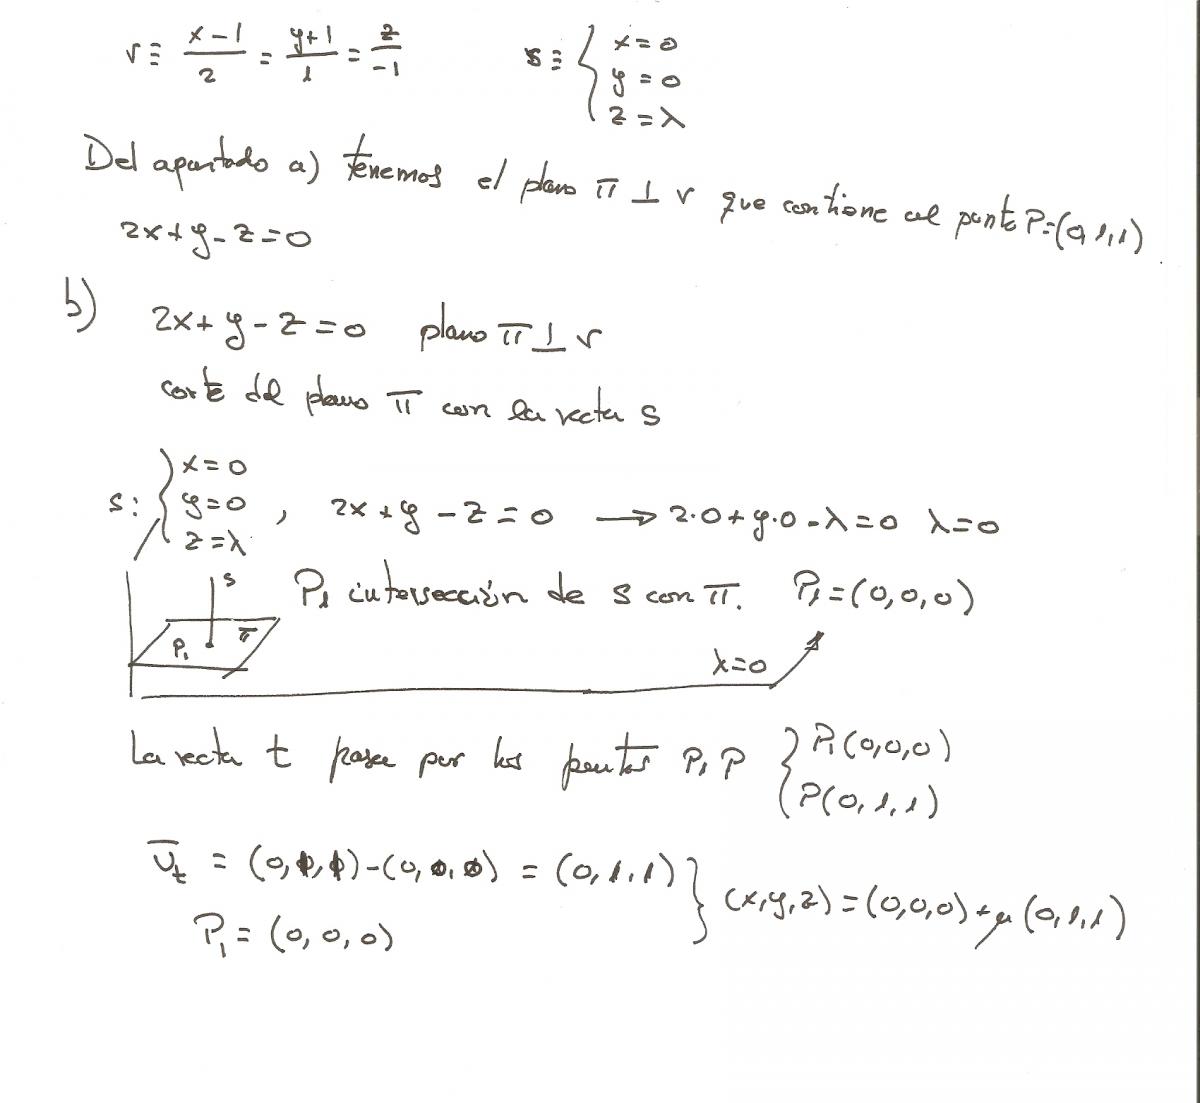 r ≡ (x-1)/2 = (y+1)/1 = z/-1    s ≡ { x=0
y=0
z=λ
Del apartado a) tenemos el plano π ⊥ r que contiene al punto P=(0,1,1)
2x+y-z=0
b) 2x+y-z=0 plano π ⊥ r
corte del plano π con la recta s
s: { x=0
y=0 , 2x+y-z=0 → 2·0+y·0-λ=0 λ=0
z=λ
s
π
P₁
P₁ intersección de s con π. P₁=(0,0,0)
λ=0
La recta t pasa por los puntos P₁ P { P₁(0,0,0)
P(0,1,1)
v̄ₜ = (0,1,1)-(0,0,0) = (0,1,1) } (x,y,z)=(0,0,0)+μ(0,1,1)
P₁=(0,0,0)